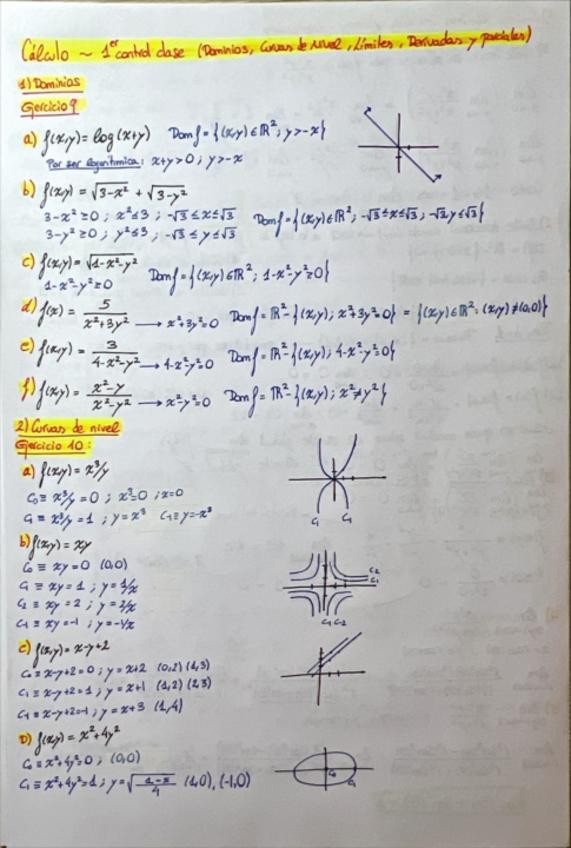 Cálculo ~ 1er control clase (Dominios, Curvas de nivel, Límites, Derivadas y parciales)
1) Dominios
Ejercicio 9
a) f(x,y) = log(x+y) Dom f = {(x,y) ∈ ℝ²; y>-x}
Por ser logarítmica: x+y>0; y>-x
b) f(x,y) = √(3-x²) + √(3-y²)
3-x² ≥ 0; x² ≤ 3; -√3 ≤ x ≤ √3 Dom f = {(x,y) ∈ ℝ²; -√3 ≤ x ≤ √3; -√3 ≤ y ≤ √3}
3-y² ≥ 0; y² ≤ 3; -√3 ≤ y ≤ √3
c) f(x,y) = √(1-x²-y²) Dom f = {(x,y) ∈ ℝ²; 1-x²-y² ≥ 0}
1-x²-y² ≥ 0
d) f(x) = 5/(x²+3y²) → x²+3y²=0 Dom f = ℝ² - {(x,y); x²+3y²=0} = {(x,y) ∈ ℝ²: (x,y) ≠ (0,0)}
e) f(x,y) = 3/(4-x²-y²) → 4-x²-y²=0 Dom f = ℝ² - {(x,y); 4-x²-y²=0}
f) f(x,y) = (x²-y)/(x²-y²) → x²-y²=0 Dom f = ℝ² - {(x,y); x²≠y²}
2) Curvas de nivel
Ejercicio 10:
a) f(x,y) = x³/y
C₀ ≡ x³/y = 0; x³=0; x=0
C₁ ≡ x³/y = 1; y = x³ C₋₁ ≡ y=-x³
C₁ C₁
b) f(x,y) = xy
C₀ ≡ xy=0 (0,0)
C₁ ≡ xy=1; y=1/x
C₂ ≡ xy=2; y=2/x
C₋₁ ≡ xy=-1; y=-1/x
C₂
C₁
C₁ C₂
c) f(x,y) = x-y+2
C₀ ≡ x-y+2=0; y=x+2 (0,2) (1,3)
C₁ ≡ x-y+2=1; y=x+1 (1,2) (2,3)
C₋₁ ≡ x-y+2=-1; y=x+3 (1,4)
D) f(x,y) = x²+4y²
C₀ ≡ x²+4y²=0; (0,0)
C₁ ≡ x²+4y²=1; y=√((1-x)/4) (1,0), (-1,0)
C₀
C₁